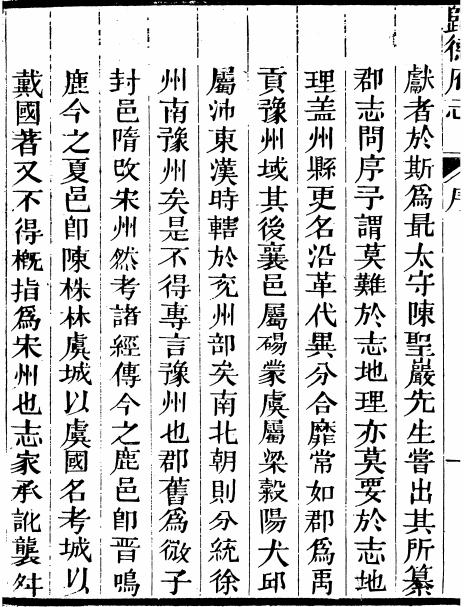 歸德府志 序 一
獻者於斯爲最太守陳聖巖先生嘗出其所纂
郡志問序予謂莫難於志地理亦莫要於志地
理盖州縣更名沿革代異分合靡常如郡爲禹
貢豫州域其後襄邑屬碭蒙虞屬梁穀陽犬邱
屬沛東漢時轄於兖州部矣南北朝則分統徐
州南豫州矣是不得專言豫州也郡舊爲微子
封邑隋改宋州然考諸經傳今之鹿邑卽晋鳴
鹿今之夏邑卽陳株林虞城以虞國名考城以
戴國著又不得槪指爲宋州也志家承訛襲舛